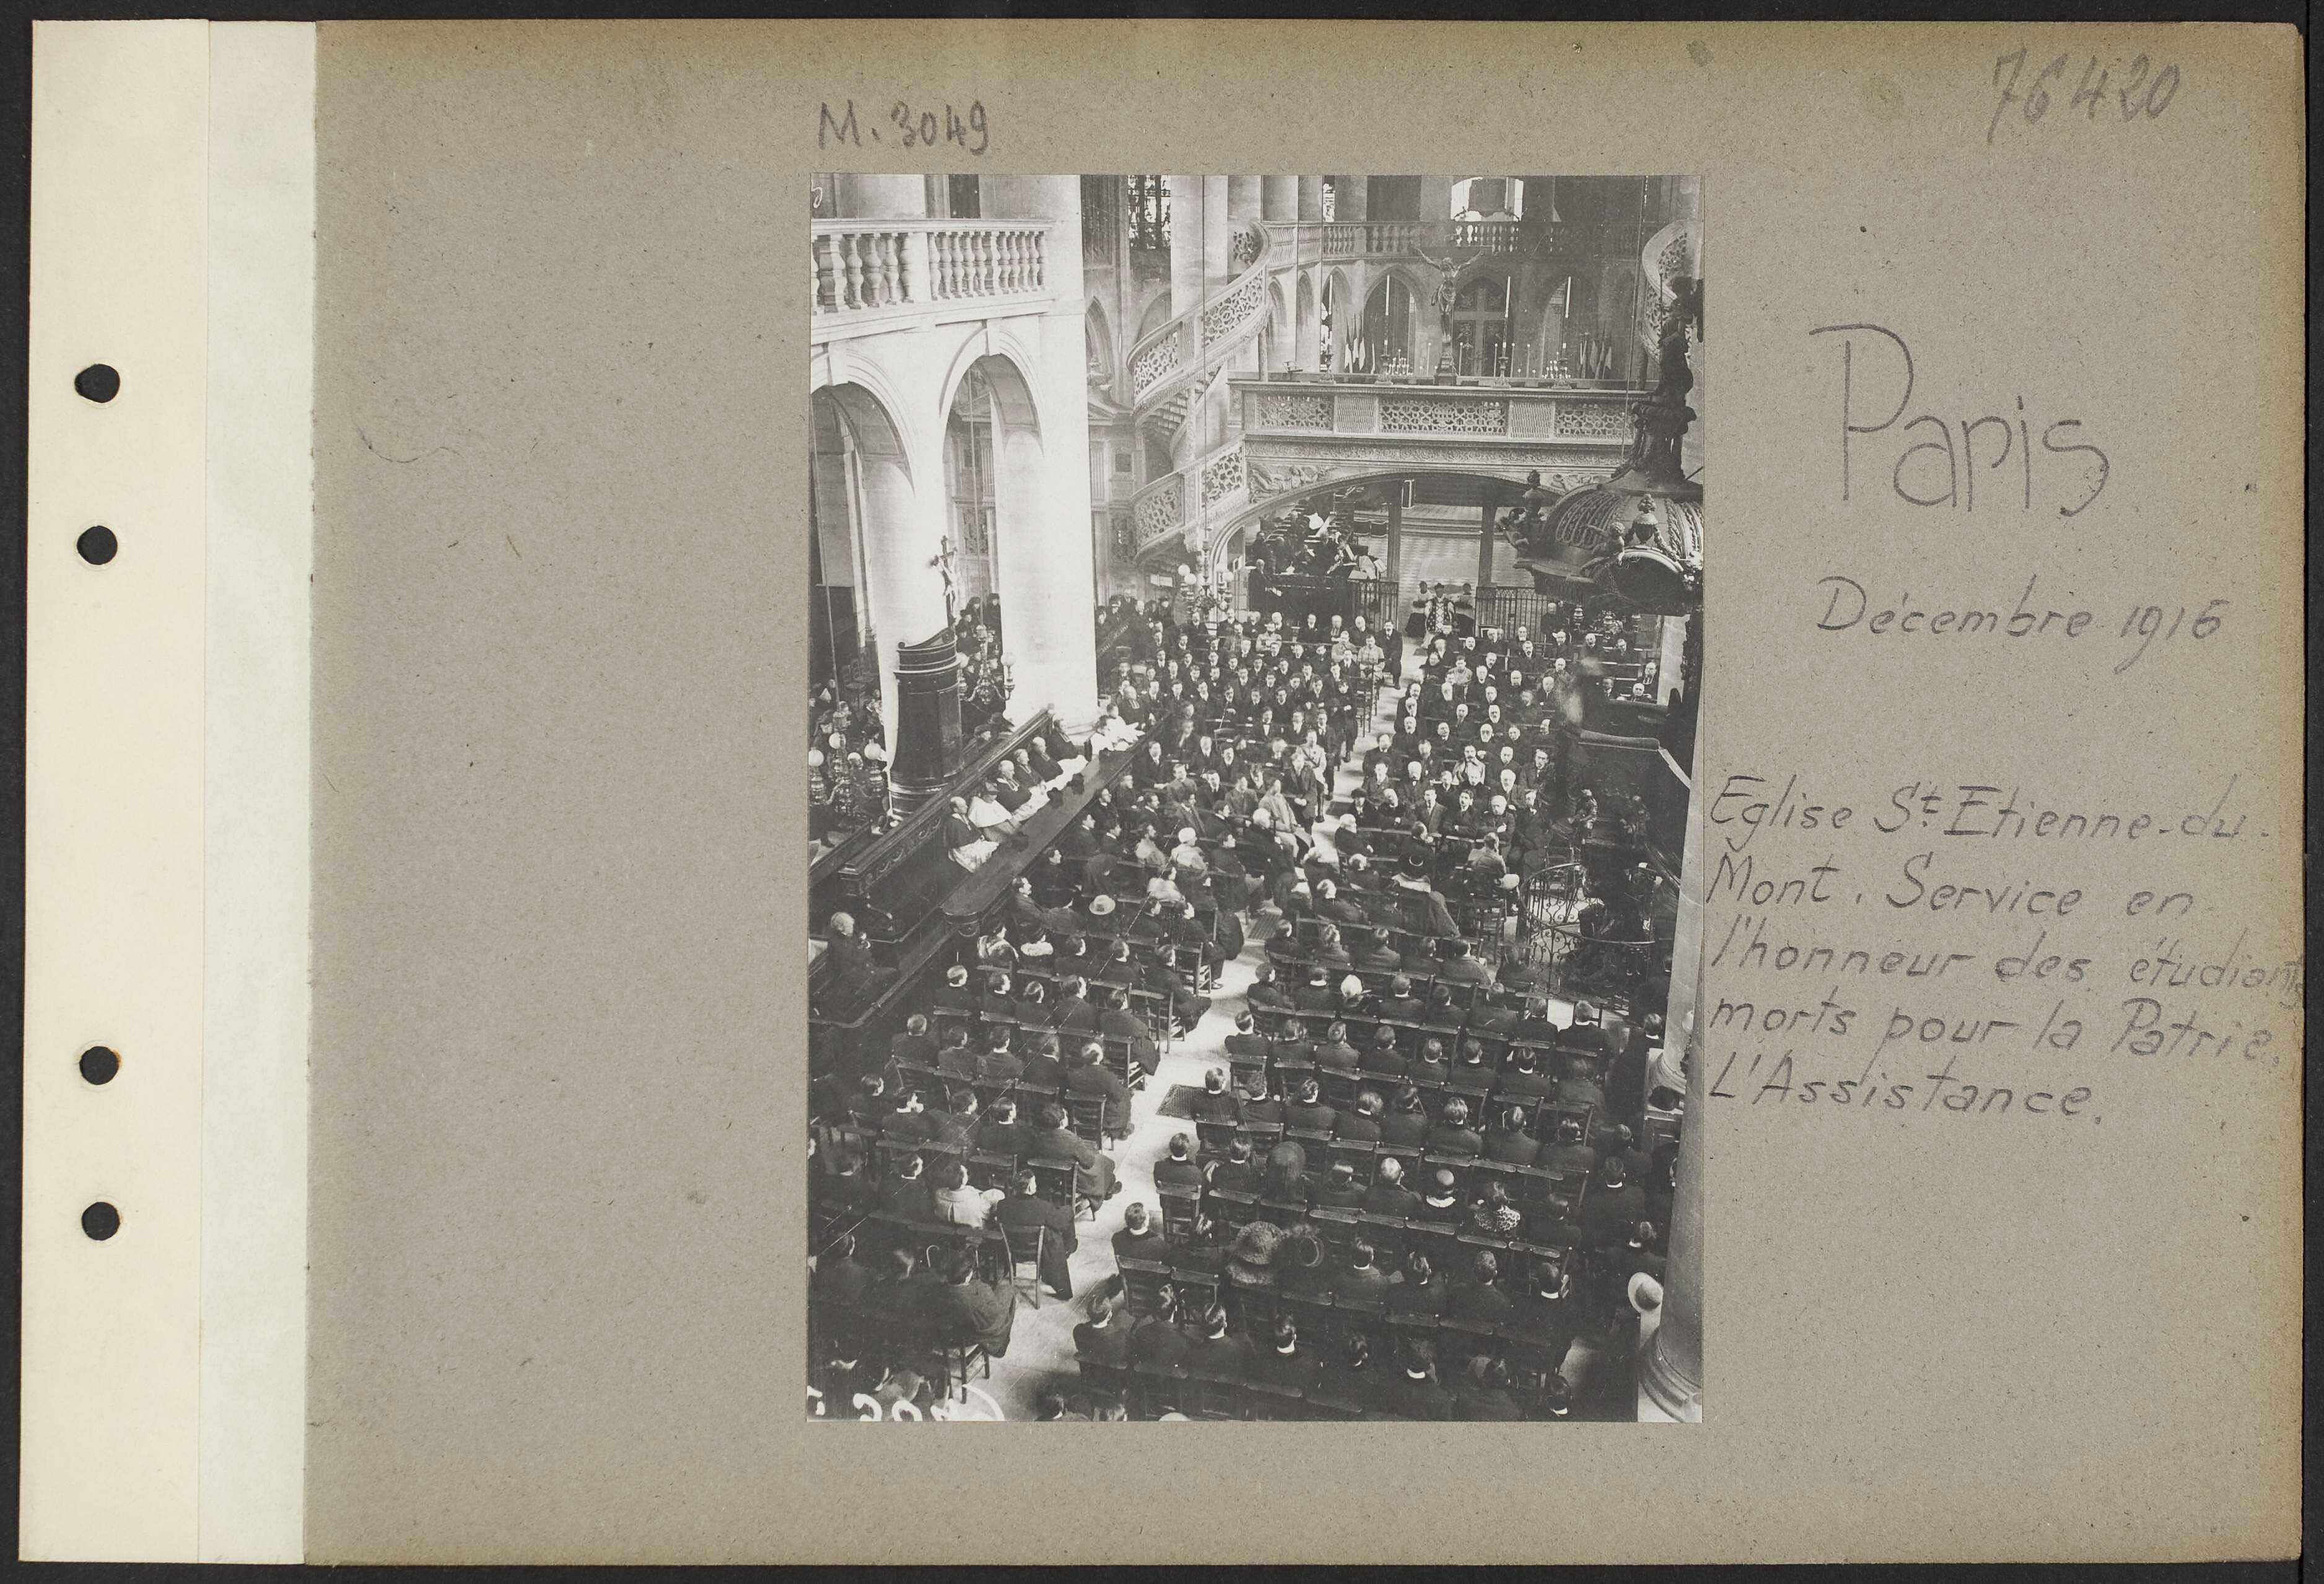 M. 3049
76420
Paris
Décembre 1916
Eglise St. Etienne-du-
Mont. Service en
l'honneur des étudiants
morts pour la Patrie.
L'Assistance.